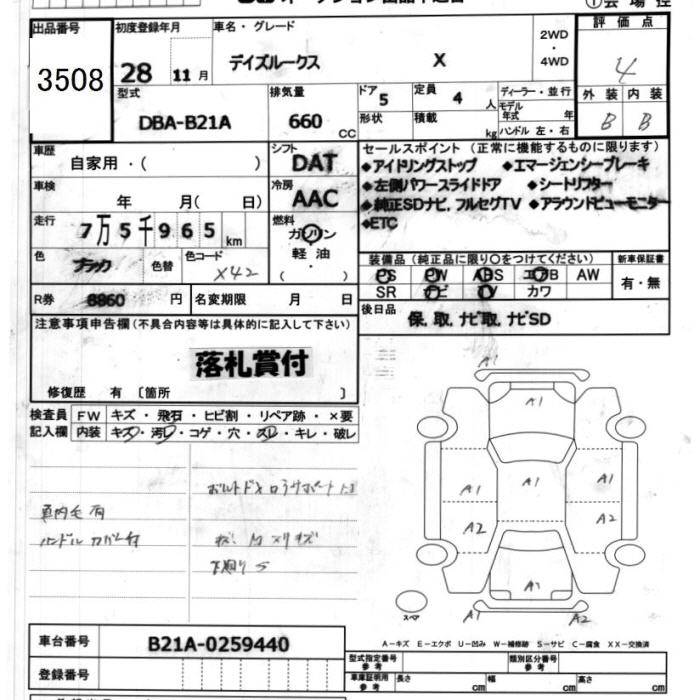 ① 会場控
出品番号 初度登録年月 車名・グレード 2WD・4WD 評価点
3508 28 11月 デイズルークス X 4
型式 排気量 ドア 定員 ディーラー・並行 外装 内装
DBA-B21A 660 CC 5 4 人 モデル年式 年 B B
形状 積載 kg ハンドル 左・右
車歴 シフト セールスポイント(正常に機能するものに限ります)
自家用・( ) DAT ◆アイドリングストップ ◆エマージェンシーブレーキ
車検 冷房 ◆左側パワースライドドア ◆シートリフター
年 月( 日) AAC ◆純正SDナビ,フルセグTV ◆アラウンドビューモニター
走行 燃料 ◆ETC
7万5千965km ガソリン
軽油・( )
色 色替 色コード 装備品(純正品に限り○をつけてください) 新車保証書
ブラック X42 PS PW ABS エアB AW 有・無
SR ナビ TV カワ
R券 8860円 名変期限 月 日 後日品
保,取,ナビ取,ナビSD
注意事項申告欄(不具合内容等は具体的に記入して下さい)
落札賞付
修復歴 有 〔箇所 〕
検査員 FW キズ・飛石・ヒビ割・リペア跡・×要
記入欄 内装 キズ・汚レ・コゲ・穴・スレ・キレ・破レ
A1
A1
A1 A1 A1
A2 A2
A2
A2
スペア
A-キズ E-エクボ U-凹み W-補修跡 S-サビ C-腐食 XX-交換済
車台番号 B21A-0259440
型式指定番号 参考 類別区分番号 参考
登録番号 車庫証明用 参考 長さ cm 幅 cm 高さ cm